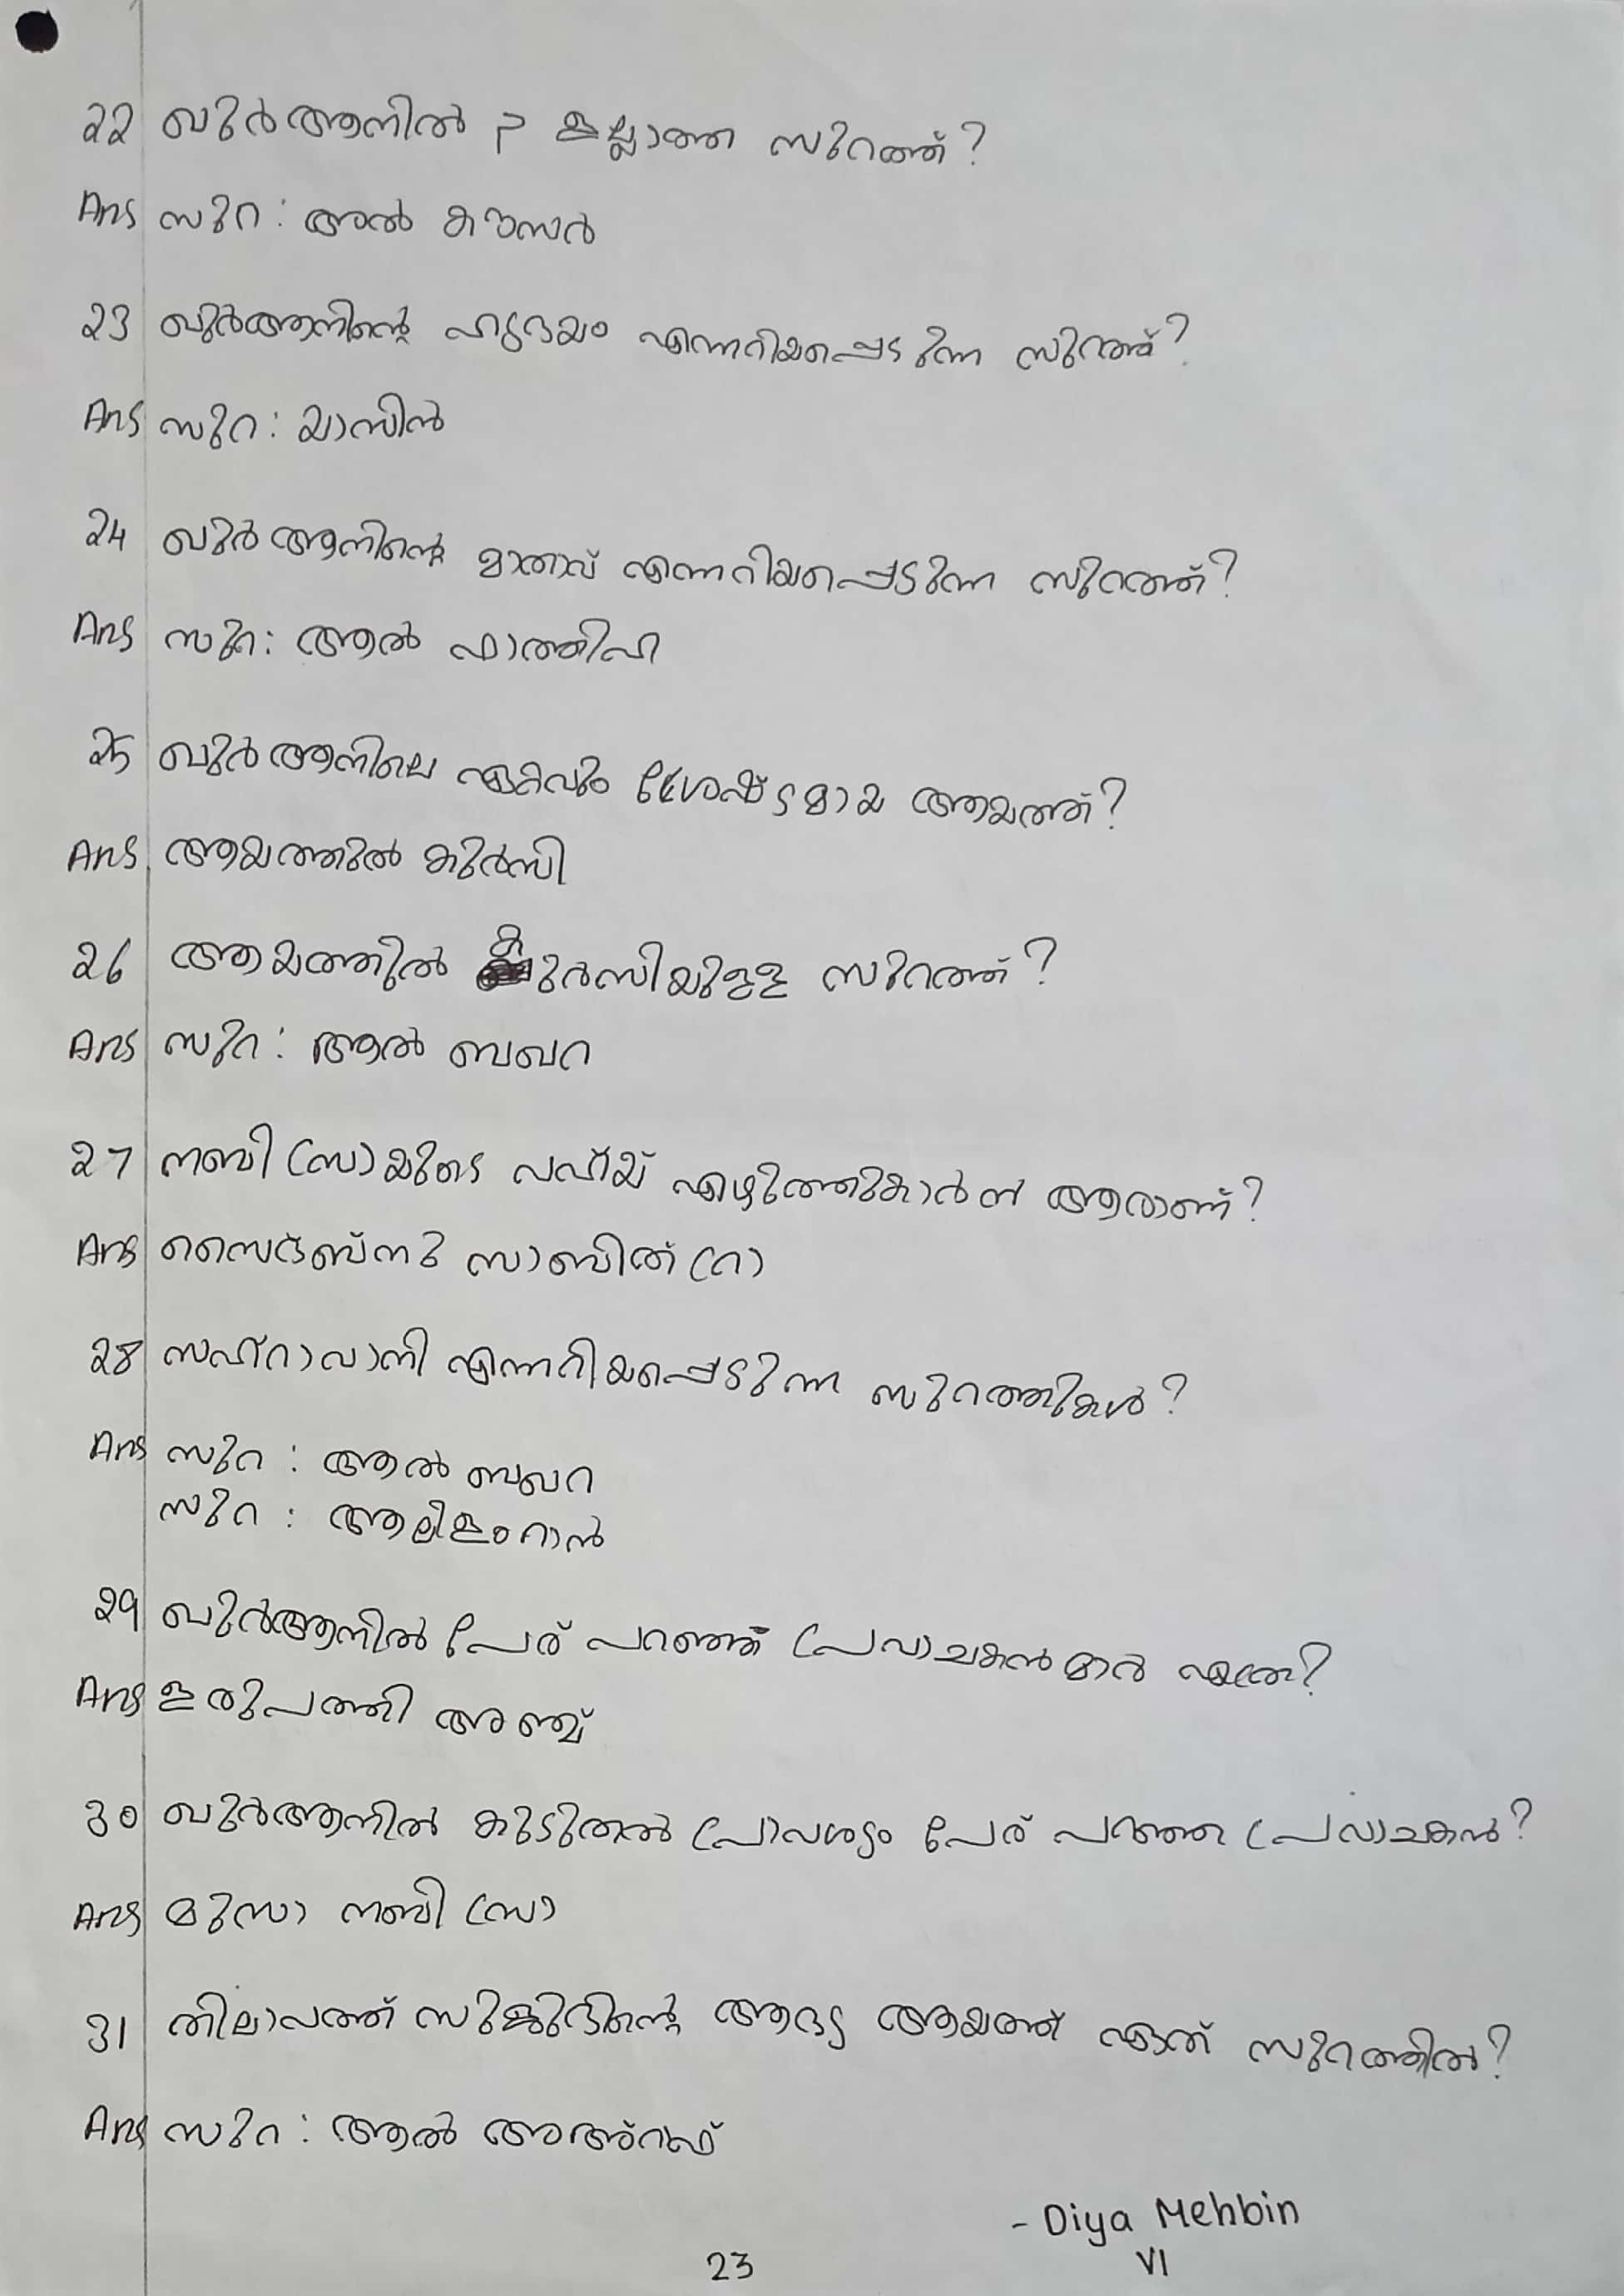 22 ഖുർആനിൽ م ഇല്ലാത്ത സൂറത്ത്?
Ans സൂറ : അൽ കൗസർ
23 ഖുർആനിന്റെ ഹൃദയം എന്നറിയപ്പെടുന്ന സൂറത്ത്?
Ans സൂറ : യാസീൻ
24 ഖുർആനിന്റെ മാതാവ് എന്നറിയപ്പെടുന്ന സൂറത്ത്?
Ans സൂറ : ആൽ ഫാത്തിഹ
25 ഖുർആനിലെ ഏറ്റവും ശ്രേഷ്ടമായ ആയത്ത്?
Ans ആയത്തുൽ കുർസി
26 ആയത്തുൽ കുർസിയുളള സൂറത്ത്?
Ans സൂറ : ആൽ ബഖറ
27 നബി (സ)യുടെ വഹ്‌യ് എഴുത്തുകാർ ആരാണ്?
Ans സൈദ്ബ്നു സാബിത് (റ)
28 സഹ്റാവാനി എന്നറിയപ്പെടുന്ന സൂറത്തുകൾ?
Ans സൂറ : ആൽ ബഖറ
സൂറ : ആലിഇംറാൻ
29 ഖുർആനിൽ പേര് പറഞ്ഞ പ്രവാചകൻമാർ എത്ര?
Ans ഇരുപത്തി അഞ്ച്
30 ഖുർആനിൽ കൂടുതൽ പ്രാവശ്യം പേര് പറഞ്ഞ പ്രവാചകൻ?
Ans മൂസാ നബി (സ)
31 തിലാവത്ത് സുജൂദിന്റെ ആദ്യ ആയത്ത് ഏത് സൂറത്തിൽ?
Ans സൂറ : ആൽ അഅ്റഫ്
- Diya Mehbin
VI
23